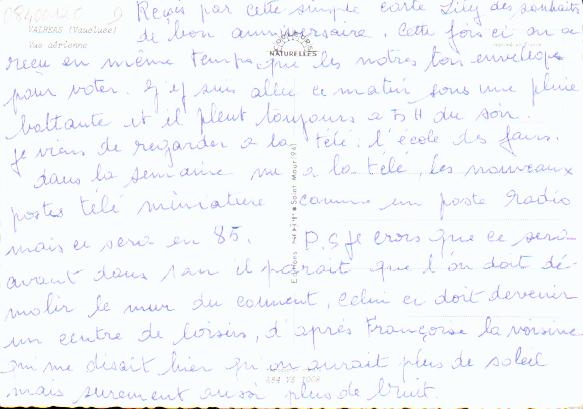 08400120 9
Reçois par cette simple carte Lily des souhaits
VALREAS (Vaucluse)
de bon anniversaire. Cette fois ci on a
Vue aérienne
COULEURS NATURELLES
reçu en même temps que les notres ton enveloppe
pour voter. J'y suis allée ce matin sous une pluie
battante et il pleut toujours a 7 H du soir.
Je viens de regarder a la télé: l'école des fans.
dans la semaine vu a la télé, les nouveaux
postes télé miniature comme un poste radio
mais ce sera en 85. P.S Je crois que ce sera
avant dans 1 an il parait que l'on doit dé-
molir le mur du couvent, Celui ci doit devenir
un centre de loisirs, d'après Françoise la voisine
qui me disait hier qu'on aurait plus de soleil
mais surement aussi plus de bruit.
Editions Saint Maur (94)
A84 VS 1008